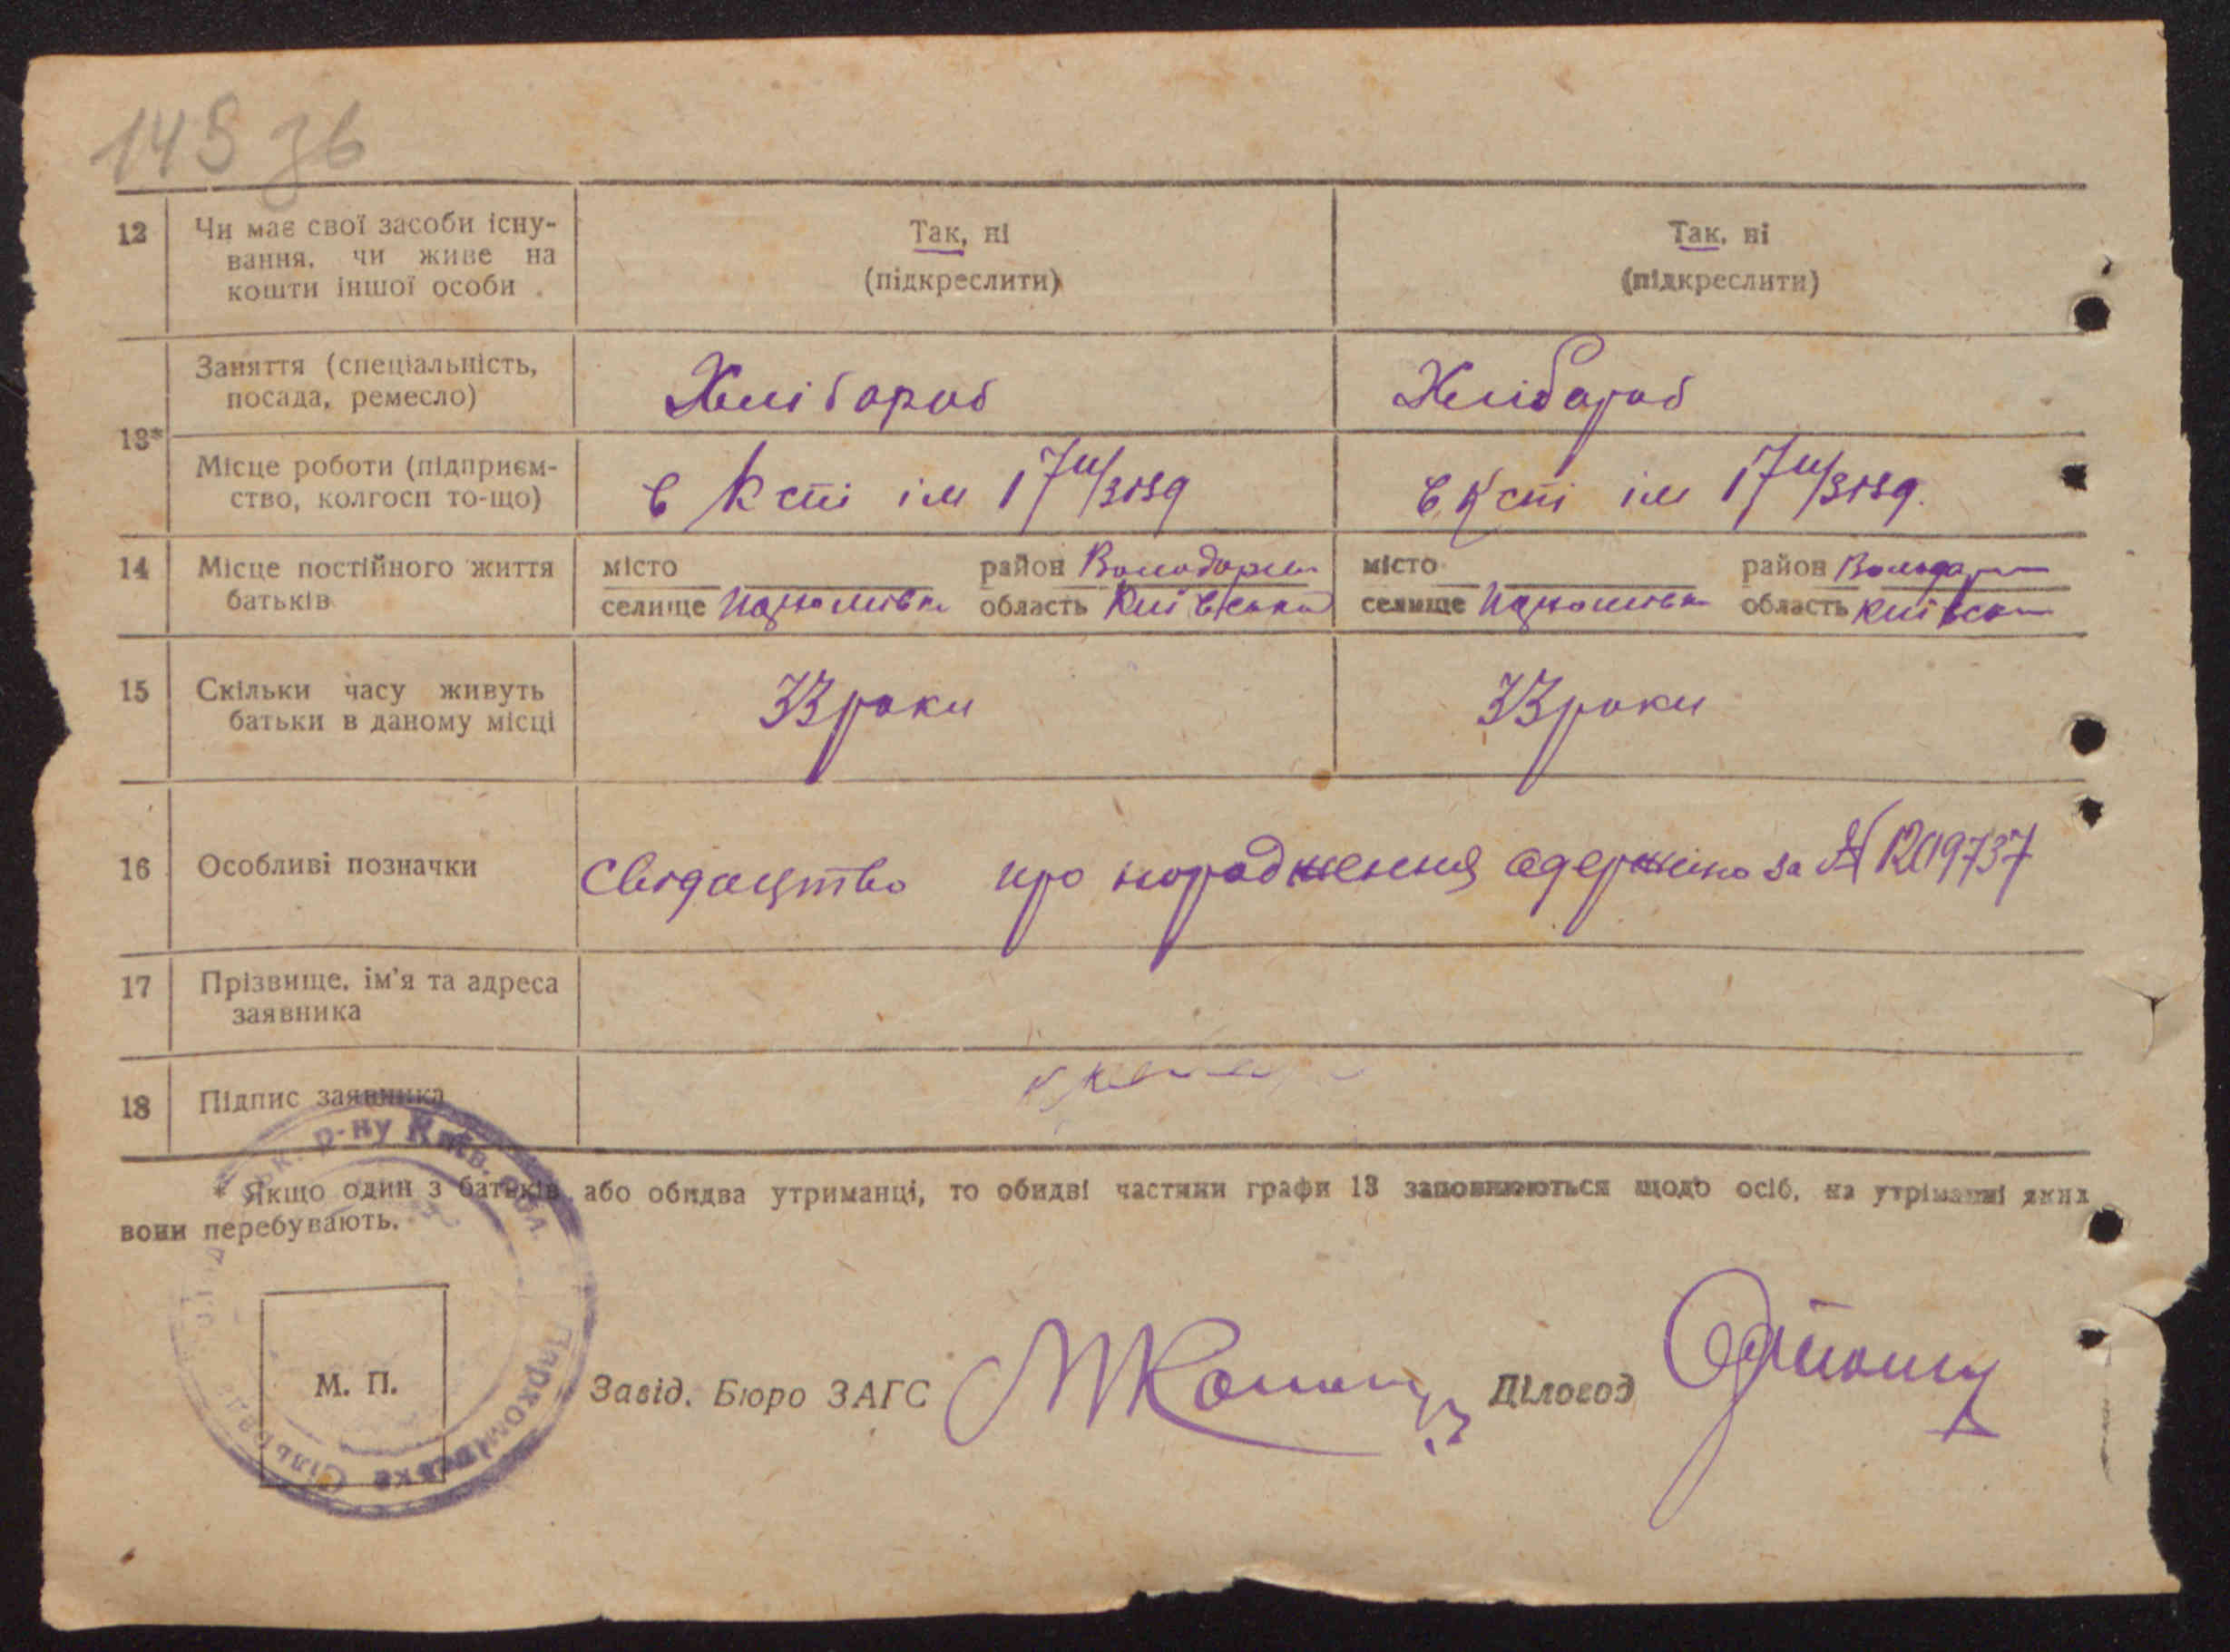 145 зв
12 Чи має свої засоби існу-
вання, чи живе на
кошти іншої особи.
Так, ні
(підкреслити)
Так, ні
(підкреслити)
13*
Заняття (спеціальність,
посада, ремесло)
Хлібороб
Хлібороб
Місце роботи (підприєм-
ство, колгосп то-що)
в к спі ім 17 п/зізд
в к спі ім 17 п/зізд.
14 Місце постійного життя
батьків
місто район Володарськ
селище Пархомівка область Київська
місто район Володарськ
селище Пархомівка область Київська
15 Скільки часу живуть
батьки в даному місці
33 роки
33 роки
16 Особливі позначки
Свідоцтво про народження одержано за № 1209737
17 Прізвище, ім'я та адреса
заявника
18 Підпис заявника
* Якщо один з батьків або обидва утриманці, то обидві частини графи 13 заповнюються щодо осіб, на утріманні яких
вони перебувають.
р-ну Київ. обл.
Пархомівська Сільрада
М. П.
Завід. Бюро ЗАГС
Діловод